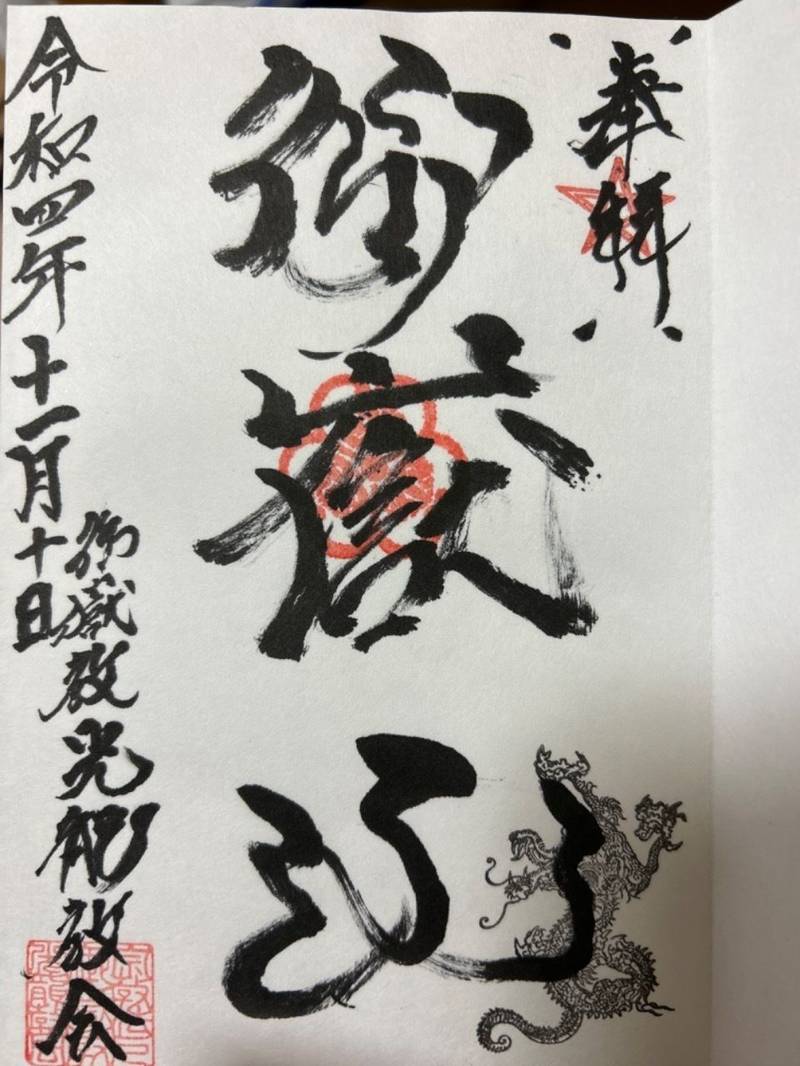 奉拝
御嶽山
御嶽教光龍教会
令和四年十一月十日